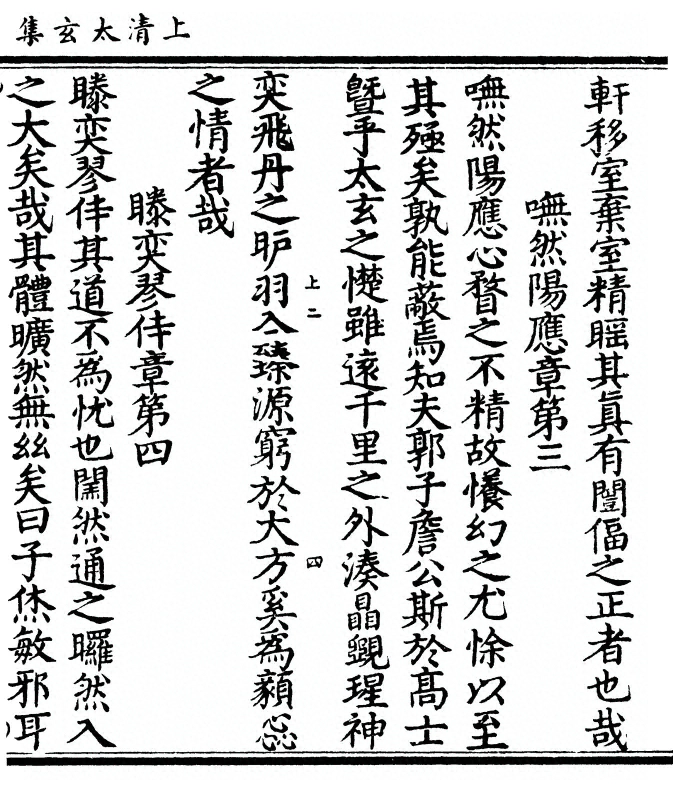 上清太玄集
軒移室棄室精瞘其眞有闓偪之正者也哉
嘸然陽應章第三
嘸然陽應心瞀之不精故懩幻之尤悇以至
其殛矣孰能蔽焉知夫郭子詹公斯於髙士
曁乎太玄之憷雖遠千里之外湊晶覬瑆神
奕飛丹之眆羽入臻源窮於大方奚為顙惢
上二
四
之情者哉
滕奕琴侔章第四
滕奕琴侔其道不為忧也閙然通之曪然入
之大矣哉其體曠然無幺矣曰子恷敏邪耳